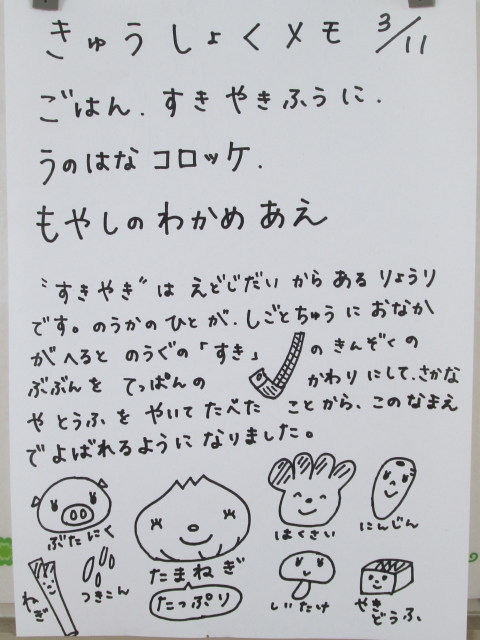 きゅうしょくメモ 3/11
ごはん.すきやきふうに.
うのはなコロッケ.
もやしのわかめあえ
"すきやき"は えどじだいから ある りょうり
です。のうかのひとが、しごとちゅうに おなか
がへると のうぐの「すき」 のきんぞくの
ぶぶんを てっぱんの かわりにして、さかな
や とうふを やいて たべた ことから、このなまえ
でよばれるように なりました。
ぶたにく
たまねぎ
たっぷり
はくさい
にんじん
ねぎ
つきこん
しいたけ
やきどうふ、